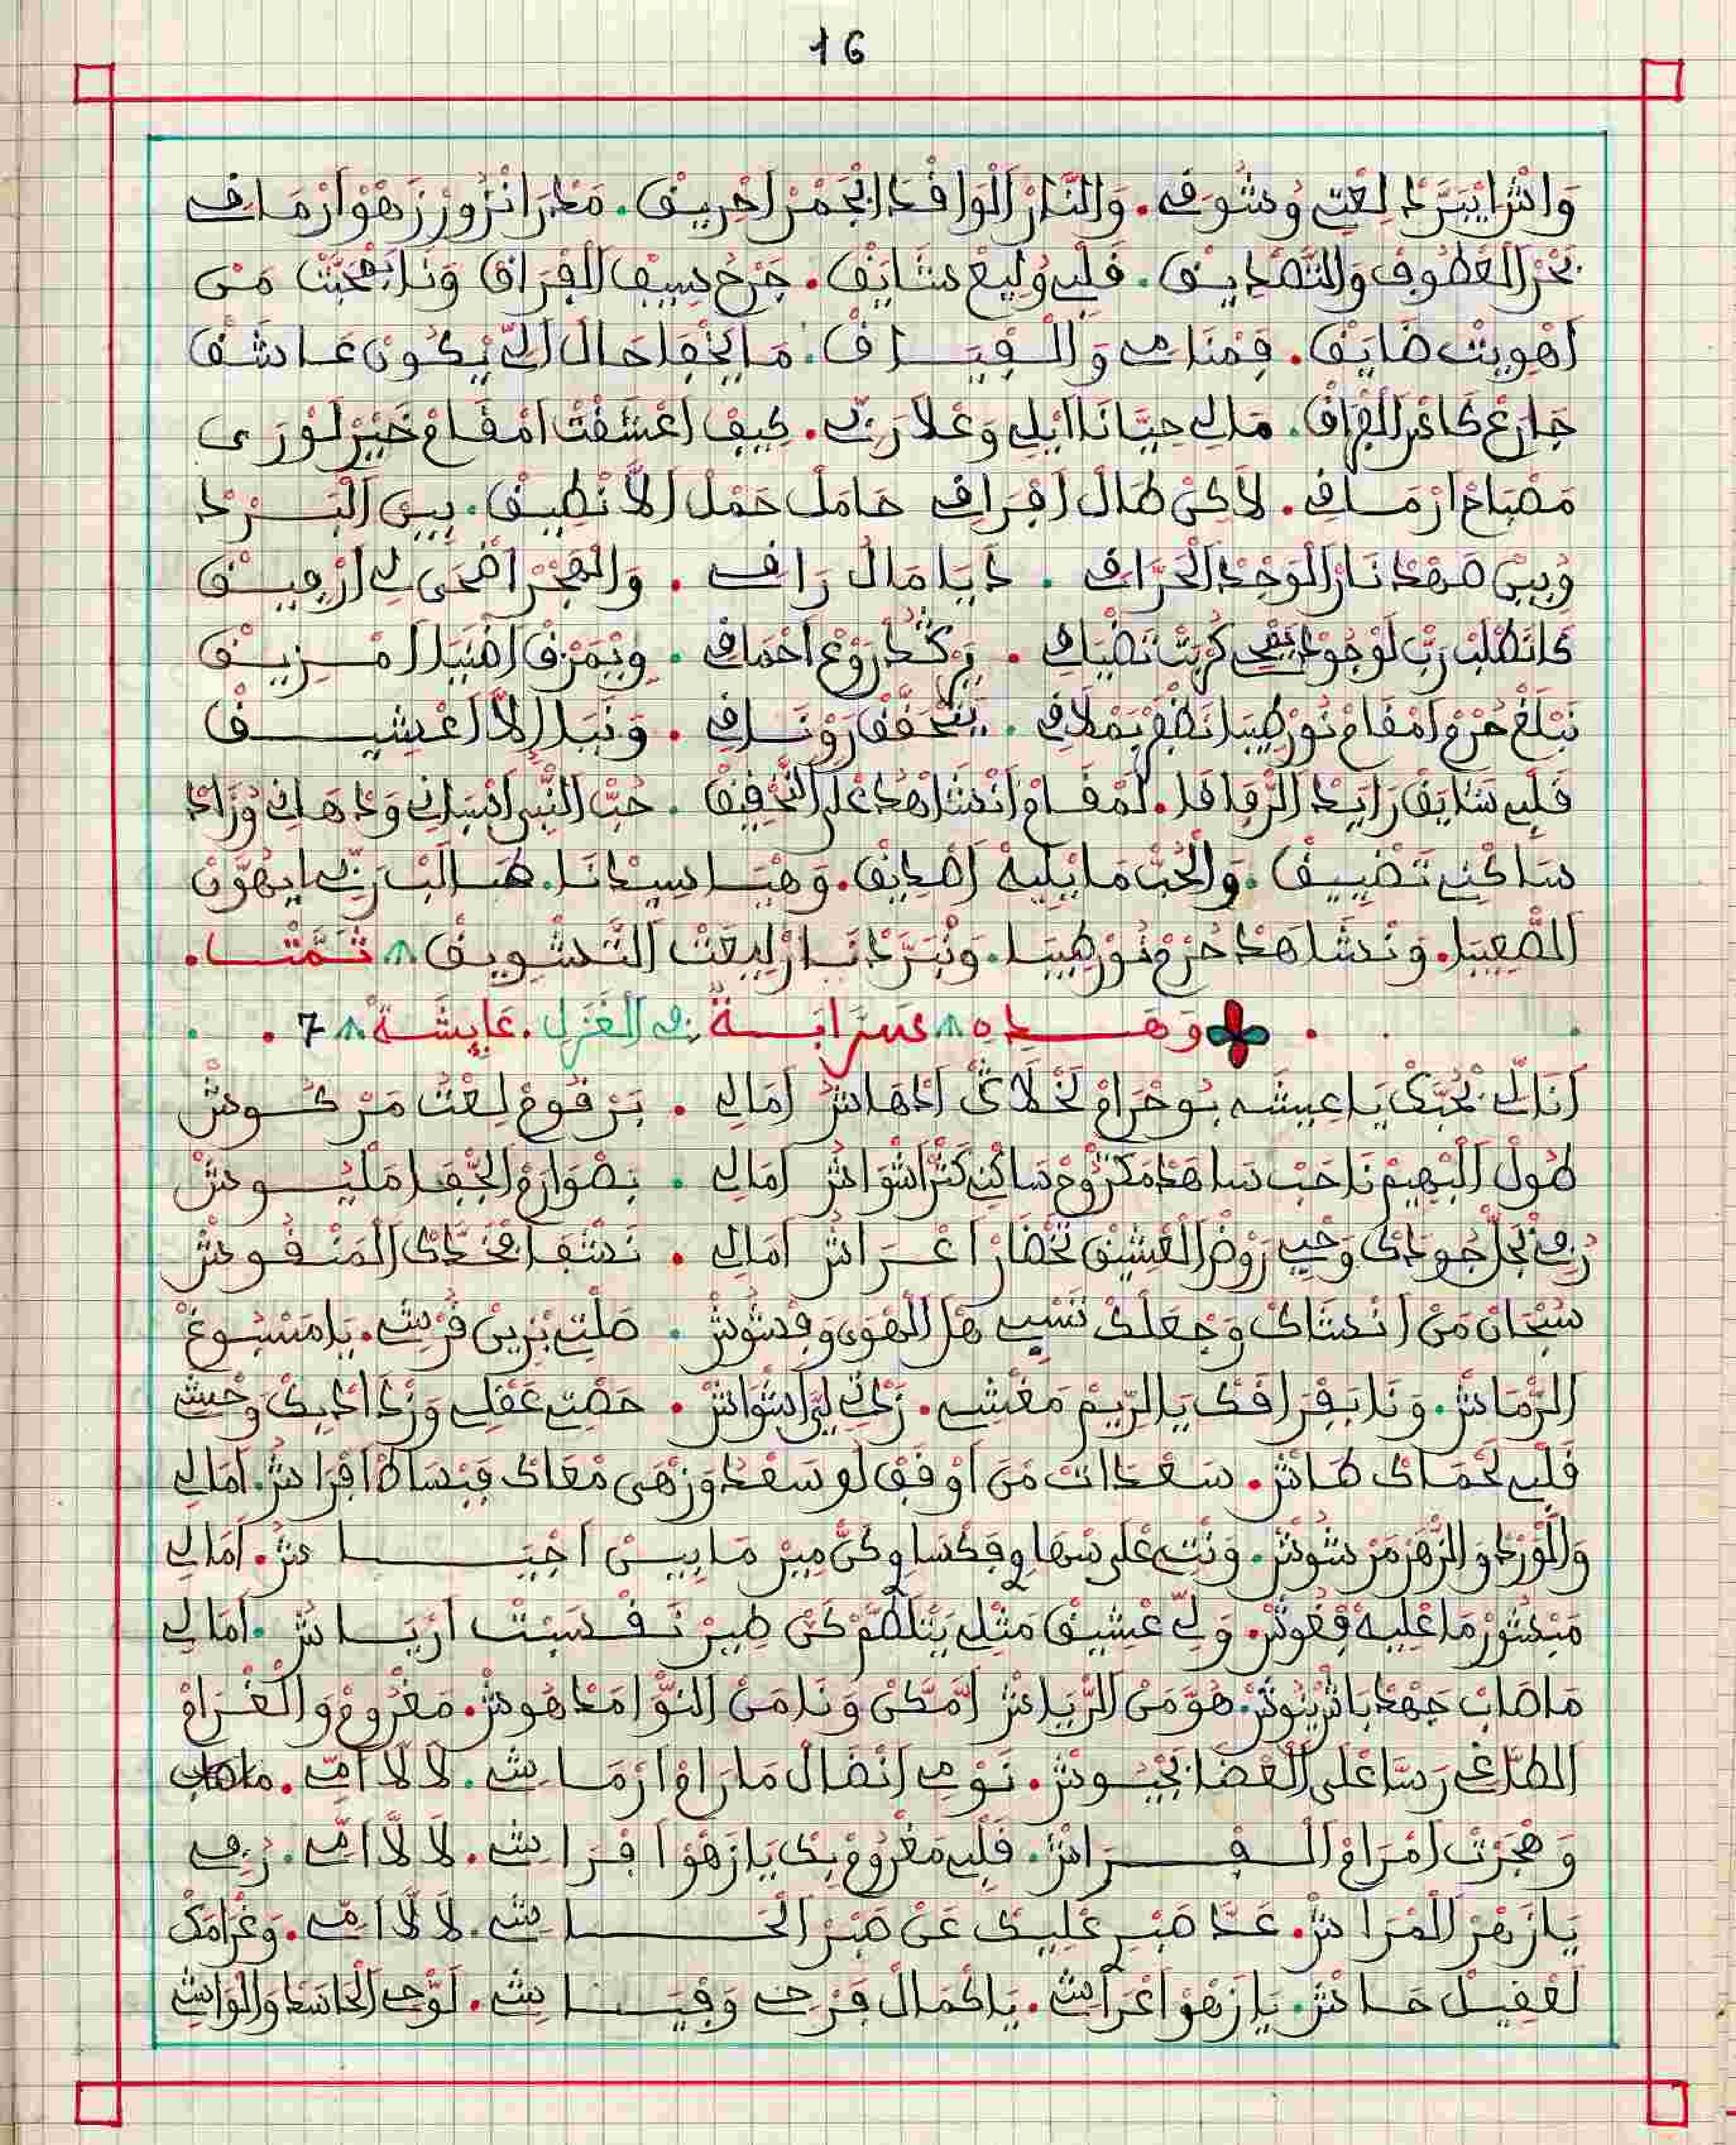 16
وَاشْ ايْبَرَّدْ لِعْتِ وُشُوفِي. وَالنَّارْ الْوَافْدَا ابْجَمْرْ احْرِيقْ. مَدْرَا انْزُورْ زَهْوْ ارْمَاقِي
بَحْرْ الْعْطُوفْ وَالتَّصْدِيقْ. قَلْبِي وُلِيعْ شَايَقْ. جَرْحُ سِيفْ الْفْرَاقْ وَنَا بَمْحَبَّتْ مَنْ
اهْوِيتْ ضَايَقْ. فِمْنَامِي وَالْفْيَاقْ. مَا يَخْفَا حَالْ الِّي يْكُونْ عَاشَقْ
جَارَعْ كَاسْ الْفْرَاقْ. مَالِي حِيَّانَا ايْلِي وَعْلَا رَبِّي. كِيفْ اعْشَقْتْ امْقَامْ خَيْرْ لَوْرَى
مَصْبَاحْ ارْمَاقِي. لَاكِنْ طَالْ افْرَاقِي حَامَلْ حَمْلْ الَّا نْطِيقْ. بِينْ الْبَرْدْ
وُبِينْ صَهْدْ نَارْ الْوَجْدْ الْحَرَّاقِي. دَايَا مَالْ رَاقِي. وَالْهْجَرْ اضْحَى لِي ارْفِيقْ
كَانَطْلَبْ رَبِّ لَوْجُودْ يَنْفِي كُرْبْتْ تَضْيَاقِي. بِرْكْدْ رَوْعْ احْمَاقِي. وِيْمَزَّقْ اضْبَابَا امْزِيقْ
نَبْلَغْ حُرْمْ امْقَامْ نُورْ طِيبَا نَظْفَرْ بَمْلَاقِي. يَتْحَقَّقْ رَوْنَاقِي. وَنْبَلْ الَّا اعْشِيقْ
قَلْبِي شَايَقْ رَايَدْ الرَّفَاقَا. لَمْقَامْ انْشَاهْدُ عْلَى التَّحْقِيقْ. حُبّْ النَّبِي اسْبَانِي وَدْهَانِي وُزَادْ
سَاكْنِي تَضْيِيقْ. وَالْحُبّْ مَا يْلِيهْ اصْدَايَقْ. وَهْيَا سِيدَانَا. طَالَبْ رَبِّي ايْهَوَّنْ
الصّْعِيبَا. وَنْشَاهَدْ حُرْمْ نُورْ طِيبَا. وَنْبَرَّدْ نَارْ لِيعْتْ التَّشْوِيقْ ۸ تَمَّتْ.
وَهَـذِهِ ۸ سَرَّابَـةٌ فِي الْغَزَلِ. عَايِشَةْ ۸ 7
انَا الِّي نْحُبَّكْ يَا عِيشَه بُوحْرَامْ لَخْلَاكْ ادْهَاشْ امَالِي. بَرْقُومْ لِعْتُ مَرْكُوشْ
طُولْ الْبْهِيمْ نَاحَبْ سَاهَدْ مَكْرُوحْ سَاكْنِي كَثْرْ اشْوَاشْ امَالِي. بَصْوَارَمْ الْجْفَا مَلْيُوشْ
رُفِي بْجَلّْ جُودَكْ وَحْيِي رَوْضْ الْعْشِيقْ تَخْضَارْ اعْرَاشْ امَالِي. نَشْفَا بْخَدَّكْ الْمَنْقُوشْ
سُبْحَانْ مَنْ انْشَاكْ وَجْعَلْكْ تَسْبِي هْلْ الْهْوَى وَفْشُوشْ. صَلْتِي بْزِينْ قُرْشِي. يَا مَسْبُوغْ
الرّْمَاشْ. وَنَا بَفْرَاقَكْ يَا الرِّيمْ مَغْشِي. زَدْتِي لِيَّ اشْوَاشْ. حَصْتِي عَقْلِي وَزْدَادْ بِكْ وَحْشِي
قَلْبِي لَحْمَاكْ طَاشْ. سَعْدَاتْ مَنْ اوْفَقْ لُو سَعْدُ وَزْهَى مْعَاكْ فَبْسَاطْ افْرَاشْ. امَالِي
وَالْوَرْدْ وَالزّْهَرْ مَرْشُوشْ. وَنْتِ عْلَى سْهَا وِفَكْسَاوِي كَنّْ مِيرْ مَا بِينْ اجْيَاشْ. امَالِي
مَنْشُورْ مَا عْلِيهْ فْغُوشْ. وَلِّي عْشِيقْ مَثْلِي يَتْلَطَّمْ كَنْ طِيرْ نَفْسَتْ ارْيَاشْ. امَالِي
مَاصَابْ جَهْدْ بَاشْ يْنُوشْ. هُوَّ مَنْ الرّْيَاشْ امَّكَّنْ وَنَا مَنْ النّْوَا مَدْهُوشْ. مَغْرُومْ وَالْغْرَامْ
الطَّاغِي رَسَّا عْلَى الْعْضَا بَجْيُوشْ. نَوْمِي انْضَالْ مَا رَامْ ارْمَاشِي. لَا لَّا امِّي. مَاصَاب
وَهْجَرْتْ امْرَامْ الْفْرَاشْ. قَلْبِي مَغْرُومْ بِكْ يَا زَهْوْ افْرَاشِي. لَا لَّا امِّي. رُفِي
يَا زَهْرْ الْمْرَاشْ. عَدَّا صَبْرِي عْلِيكْ عَنْ صَبْرْ الْحَاشِي. لَا لَّا امِّي. وَغْرَامَكْ
لَعْقِيلْ حَاشْ. يَا زَهْوْ اعْرَاشِي. يَا كْمَالْ فَرْحِي وَفْيَاشِي. لَوْحِي الْحَاسَدْ وَالْوَاشِي